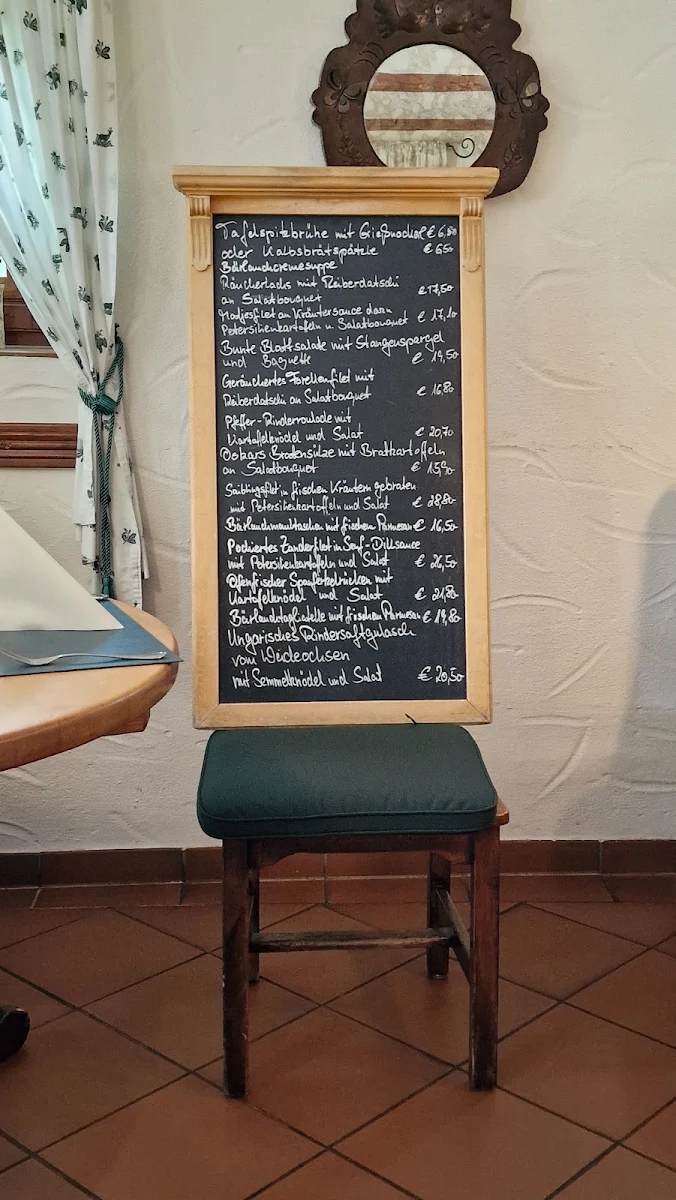 Tafelspitzbrühe mit Grießnockerl € 6,80
oder Kalbsbrätspätzle € 6,50
Bärlauchcremesuppe
Räucherlachs mit Reiberdatschi € 17,50
an Salatbouquet
Matjesfilet an Kräutersauce dazu € 17,10
Petersilienkartoffeln u. Salatbouquet
Bunte Blattsalate mit Stangenspargel
und Baguette € 19,50
Geräuchertes Forellenfilet mit
Reiberdatschi an Salatbouquet € 16,80
Pfeffer-Rinderroulade mit
Kartoffelknödel und Salat € 20,70
Oskars Bratensülze mit Bratkartoffeln
an Salatbouquet € 15,90
Saiblingsfilet in frischen Kräutern gebraten
mit Petersilienkartoffeln und Salat € 28,80
Bärlauchmaultaschen mit frischem Parmesan € 16,50
Pochiertes Zanderfilet in Senf-Dillsauce
mit Petersilienkartoffeln und Salat € 26,50
Ofenfrischer Spanferkelrücken mit
Kartoffelknödel und Salat € 21,80
Bärlauchtagliatelle mit frischem Parmesan € 19,80
Ungarisches Rindersaftgulasch
vom Weideochsen
mit Semmelknödel und Salat € 20,50